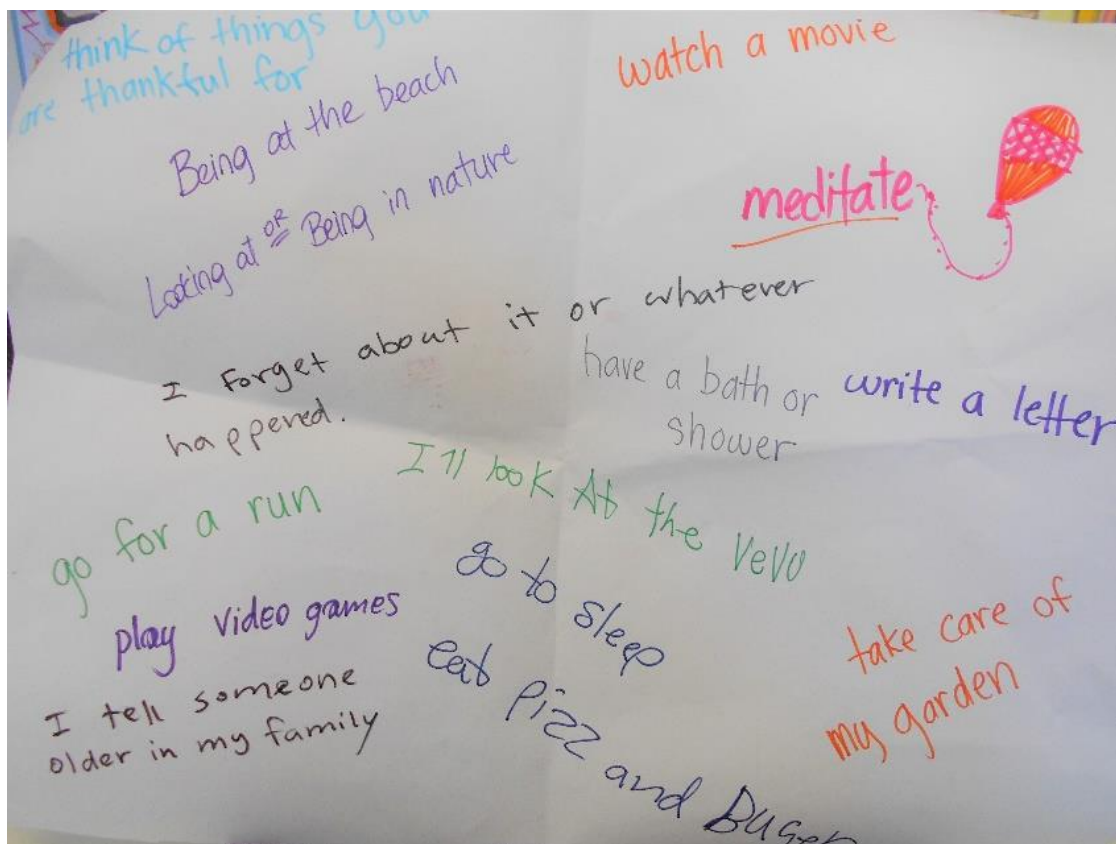 think of things you
are thankful for
watch a movie
Being at the beach
Looking at OR Being in nature
meditate
I Forget about it or whatever
happened.
have a bath or
shower
write a letter
go for a run
I'll look At the VeVo
go to sleep
play video games
I tell someone
older in my family
eat pizz and Buger
take care of
my garden